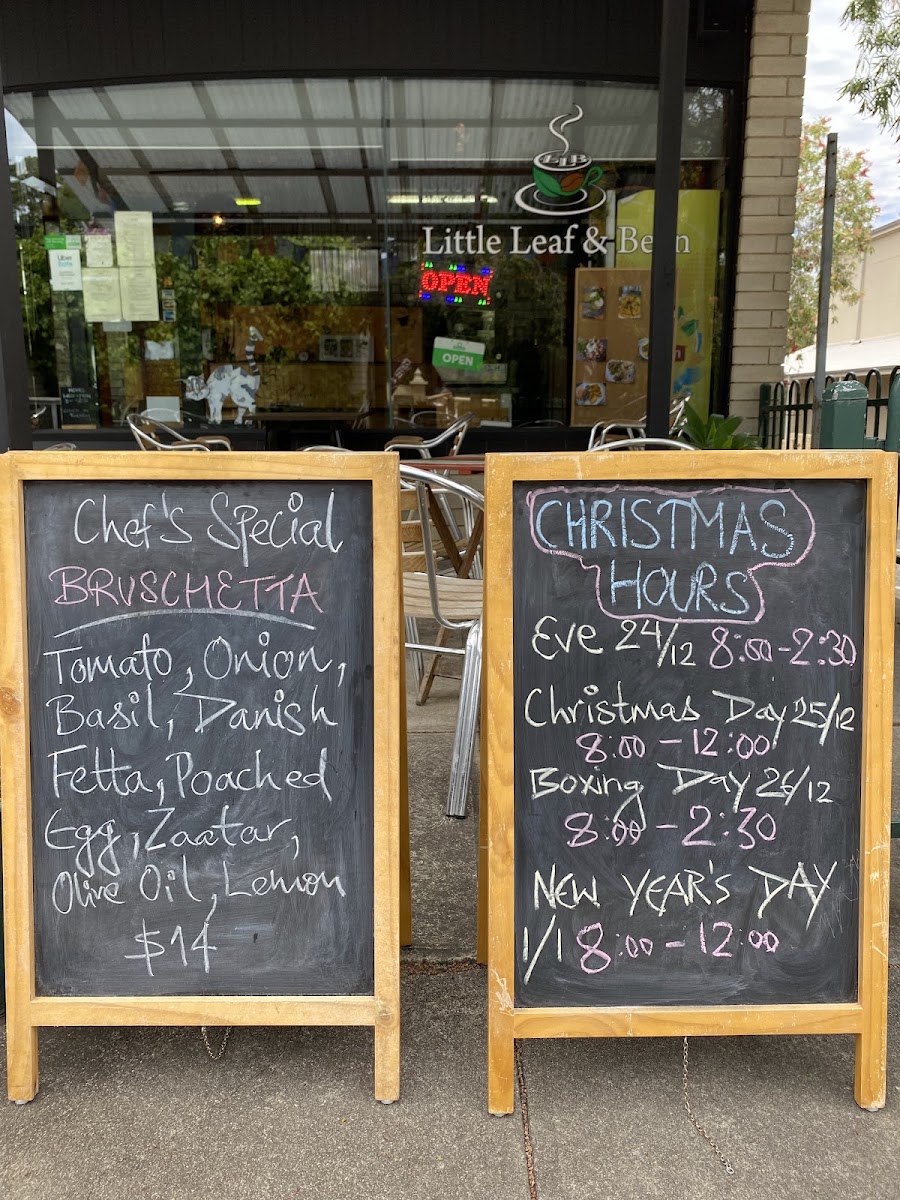 LLB
Little Leaf & Bean
OPEN
OPEN
Uber
Eats
Chef's Special
BRUSCHETTA
Tomato, Onion,
Basil, Danish
Fetta, Poached
Egg, Zaatar,
Olive Oil, Lemon
$14
CHRISTMAS
HOURS
Eve 24/12 8:00-2:30
Christmas Day 25/12
8:00-12:00
Boxing Day 26/12
8:00-2:30
NEW YEAR'S DAY
1/1 8:00-12:00